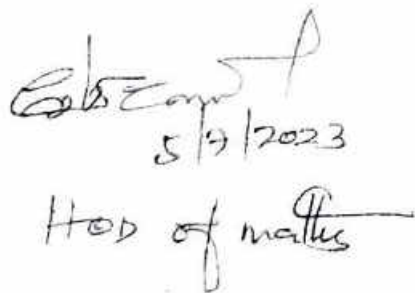 5/7/2023
HOD of maths